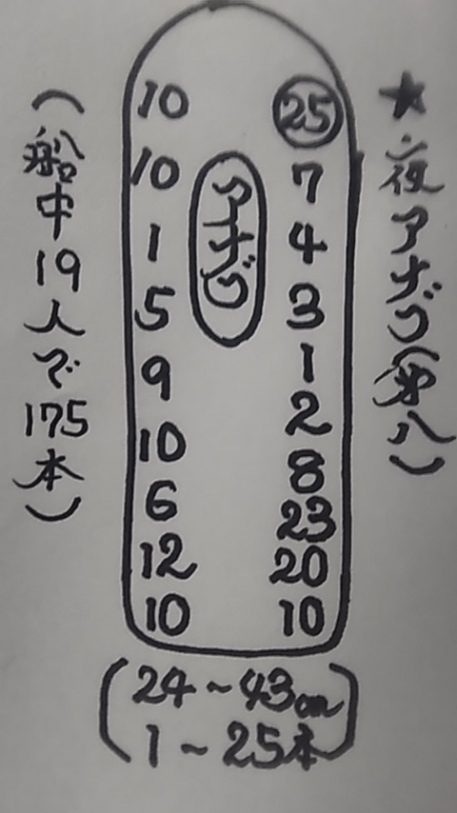 ★夜アナゴ(第八)
10 25
10 7
アナゴ
1 4
5 3
9 1
10 2
6 8
12 23
10 20
10
(船中19人で175本)
(24~43cm
1~25本)